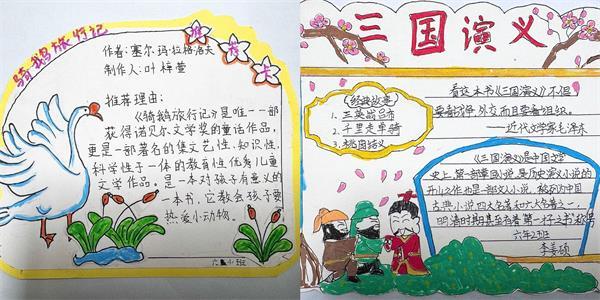 骑鹅旅行记
作者:塞尔玛·拉格洛夫
制作人:叶梓萱
推荐理由:
《骑鹅旅行记》是唯一一部
获得诺贝尔文学奖的童话作品,
更是一部著名的集文艺性,知识性,
科学性于一体的教育性优秀儿童
文学作品。是一本对孩子有意义的
一本书,它教会孩子要
热爱小动物。
三国演义
《经典故事》
1.三英战吕布
2.千里走单骑
3.桃园结义
看这本书《三国演义》不但
要看战争,外交而且要看组织。
——近代文学家毛泽东
《三国演义》是中国文学
史上第一部章回小说,是历史演义小说的
开山之作,也是一部文人小说,被列为中国
古典小说四大名著和六大名著之一,
明清时期甚至有着"第一才子书"称号
六年2班
李姜硕